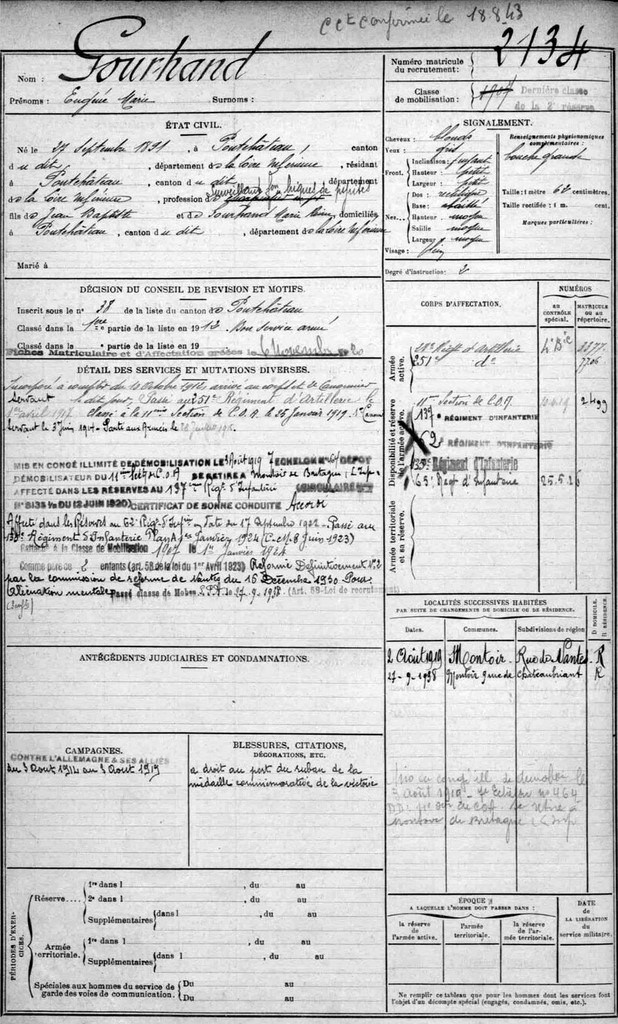 C.C.te confirmée le 18.8.43
Gourhand
Nom :
Prénoms : Eugène Marie Surnoms :
Numéro matricule
du recrutement :
2134
Classe
de mobilisation :
1907 Dernière classe
de la 2e réserve
ÉTAT CIVIL.
Né le 27 Septembre 1891, à Pontchâteau, canton
du dit, département de la Loire Inférieure, résidant
à Pontchâteau, canton du dit, département
de la Loire Inférieure, profession de
fils de Jean Baptiste et de Gourhand Marie, domiciliés
à Pontchâteau, canton du dit, département de la Loire Inférieure
Marié à
SIGNALEMENT.
Cheveux : blonds
Yeux : gris
Front. Inclinaison : fuyant
Hauteur : petit
Largeur : petit
Nez. Dos : rectiligne
Base :
Hauteur : moyen
Saillie : moyen
Largeur : moyen
Visage : plein
Renseignements physionomiques
complémentaires :
bouche grande
Taille : 1 m. 62 centimètres.
Taille rectifiée : 1 m. cent.
Marques particulières :
Degré d'instruction : 2
DÉCISION DU CONSEIL DE REVISION ET MOTIFS.
Inscrit sous le n° 38 de la liste du canton de Pontchâteau
Classé dans la 1ère partie de la liste en 1912 Bon service armé
Classé dans la partie de la liste en 19
Fiches Matriculaire et d'Affectation créées le 6 Novembre
CORPS D'AFFECTATION.
NUMÉROS
AU CONTRÔLE spécial.
MATRICULE OU AU répertoire.
Armée active.
Régt d'Artillerie
251e do
Disponibilité et réserve de l'armée active.
11e Section de C.O.A. 2499
137e RÉGIMENT D'INFANTERIE
62e RÉGIMENT D'INFANTERIE
135e Régiment d'Infanterie
65e Régt d'Infanterie 25.5.26
Armée territoriale et sa réserve.
DÉTAIL DES SERVICES ET MUTATIONS DIVERSES.
Incorporé à compter du 10 octobre 1912, arrivé au corps et 2e Canonnier
Servant le dit jour, Passé au 251e Régiment d'Artillerie le
1er avril 1917 classé à la 11ème Section de C.O.A. le 25 Janvier 1919.
Servant le 3 Juin 1914
MIS EN CONGÉ ILLIMITÉ DE DÉMOBILISATION LE 3 Août 1919 7 ECHELON DÉPOT
DÉMOBILISATEUR DU 11e Section C.O.A SE RETIRE A Montoir de Bretagne
AFFECTÉ DANS LES RÉSERVES AU 137ème Régt d'Infanterie (CIRCULAIRE
DU 12 JUIN 1920) CERTIFICAT DE BONNE CONDUITE Accordé
Affecté dans les Réserves au 62e Régt d'Infie en date du 17 Septembre 1921. Passé au
135e Régiment d'Infanterie Plan A 1er Janvier 1924 (C.M. 8 Juin 1923)
Rattaché à la Classe de Mobilisation 1907 le 1er Janvier 1924
Comme père de 2 enfants (art. 58 de la loi du 1er Avril 1923) Réformé Définitivement No 2
par la commission de réforme de Nantes du 16 Décembre 1930 pour
Aliénation mentale. Passé classe de Mobon le 27.9.1938. (Art. 58-Loi de recrutement)
LOCALITÉS SUCCESSIVES HABITÉES
PAR SUITE DE CHANGEMENTS DE DOMICILE OU DE RÉSIDENCE.
Dates. Communes. Subdivisions de région
D. DOMICILE. R. RÉSIDENCE.
2 Août 1919 Montoir. Rue de Nantes R
27-9-1938 Montoir Châteaubriant R
ANTÉCÉDENTS JUDICIAIRES ET CONDAMNATIONS.
CAMPAGNES.
CONTRE L'ALLEMAGNE & SES ALLIÉS
du 3 Août 1914 au 3 Août 1919
BLESSURES, CITATIONS,
DÉCORATIONS, ETC.
a droit au port du ruban de la
médaille commémorative de la victoire
Mis en congé ill. de démobon le
3 Août 1919 - 7e Echelon no 464
se retire à
Montoir de Bretagne
PÉRIODES D'EXERCICES.
Réserve.... 1re dans l , du au
2e dans l , du au
Supplémentaires dans l , du au
, du au
Armée territoriale. 1re dans l , du au
Supplémentaires dans l , du au
, du au
Spéciales aux hommes du service de garde des voies de communication. Du au
Du au
ÉPOQUE
A LAQUELLE L'HOMME DOIT PASSER DANS :
la réserve de l'armée active.
l'armée territoriale.
la réserve de l'armée territoriale.
DATE
DE LA LIBÉRATION
du
service militaire.
Ne remplir ce tableau que pour les hommes dont les services font
l'objet d'un décompte spécial (engagés, condamnés, omis, etc.).